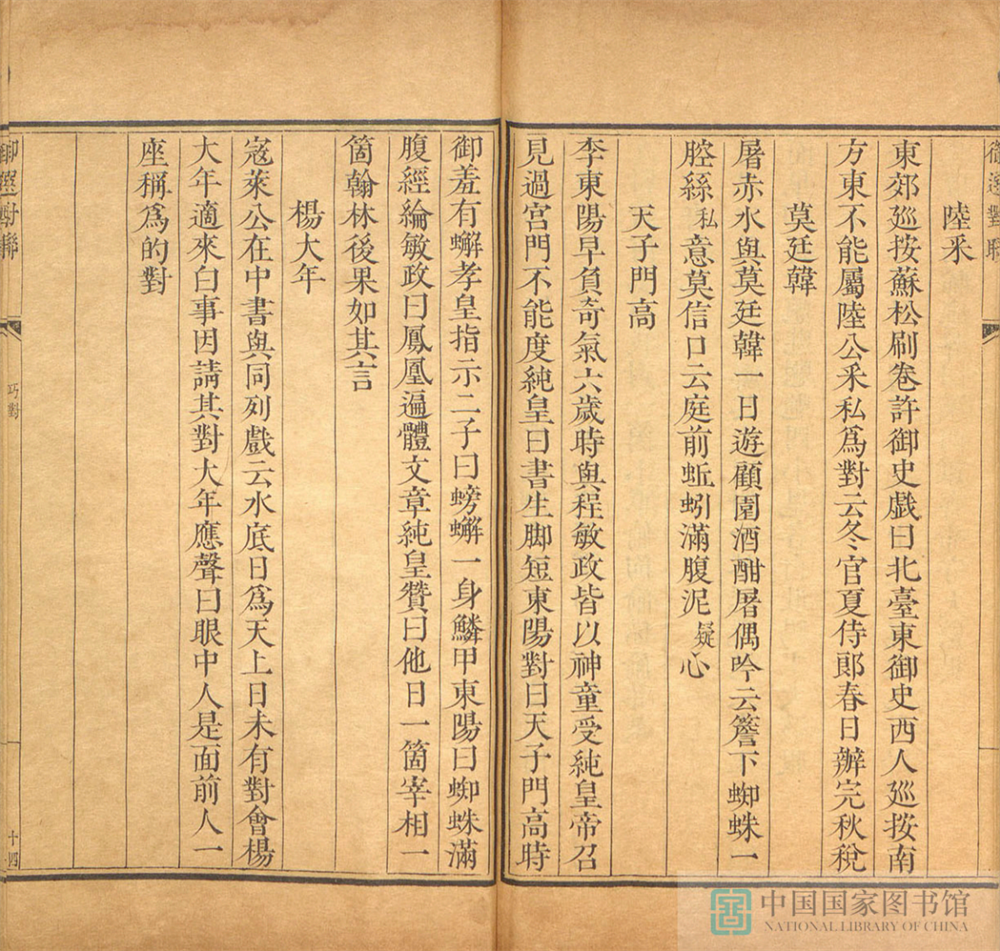 陸釆
東郊廵按蘇松刷卷許御史戯曰北臺東御史西人廵按南
方東不能屬陸公釆私爲對云冬官夏侍郎春日辦完秋稅
莫廷韓
屠赤水與莫廷韓一日遊顧園酒酣屠偶吟云簷下蜘蛛一
腔絲私意莫信口云庭前蚯蚓滿腹泥疑心
天子門高
李東陽早負奇氣六歲時與程敏政皆以神童受純皇帝召
見過宫門不能度純皇曰書生脚短東陽對曰天子門高時
御羞有蠏孝皇指示二子曰螃蠏一身鱗甲東陽曰蜘蛛滿
腹經綸敏政曰鳳凰遍體文章純皇贊曰他日一箇宰相一
箇翰林後果如其言
楊大年
寇萊公在中書與同列戲云水底日爲天上日未有對會楊
大年適來白事因請其對大年應聲曰眼中人是面前人一
座稱爲的對
巧對
十四
中国国家图书馆
NATIONAL LIBRARY OF CHINA